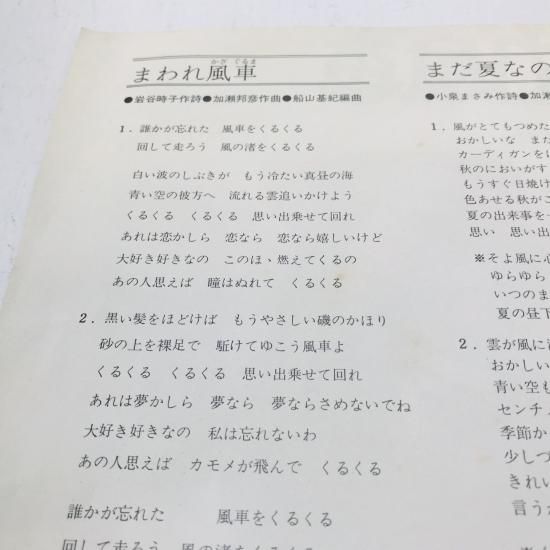 かざ ぐるま
まわれ風車
●岩谷時子作詩●加瀬邦彦作曲●船山基紀編曲
1．誰かが忘れた　風車をくるくる
回して走ろう　風の渚をくるくる
白い波のしぶきが　もう冷たい真昼の海
青い空の彼方へ　流れる雲追いかけよう
くるくる　くるくる　思い出乗せて回れ
あれは恋かしら　恋なら　恋なら嬉しいけど
大好き好きなの　このほゝ燃えてくるの
あの人思えば　瞳はぬれて　くるくる
2．黒い髪をほどけば　もうやさしい磯のかほり
砂の上を裸足で　駈けてゆこう風車よ
くるくる　くるくる　思い出乗せて回れ
あれは夢かしら　夢なら　夢ならさめないでね
大好き好きなの　私は忘れないわ
あの人思えば　カモメが飛んで　くるくる
誰かが忘れた　風車をくるくる
回して走ろう　風の渚をくるくる
まだ夏なの
●小泉まさみ作詩●加瀬
1．風がとてもつめた
おかしいな　まだ
カーディガンをは
秋のにおいがす
もうすぐ日焼け
色あせる秋がこ
夏の出来事を
思い　思い出
※そよ風に心
ゆらゆら
いつのま
夏の昼下
2．雲が風に
おかしい
青い空も
センチメ
季節か
少しづ
きれい
言うか